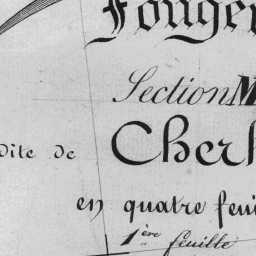 Fouger
Section M
dite de Cher
en quatre feui
1ère feuille